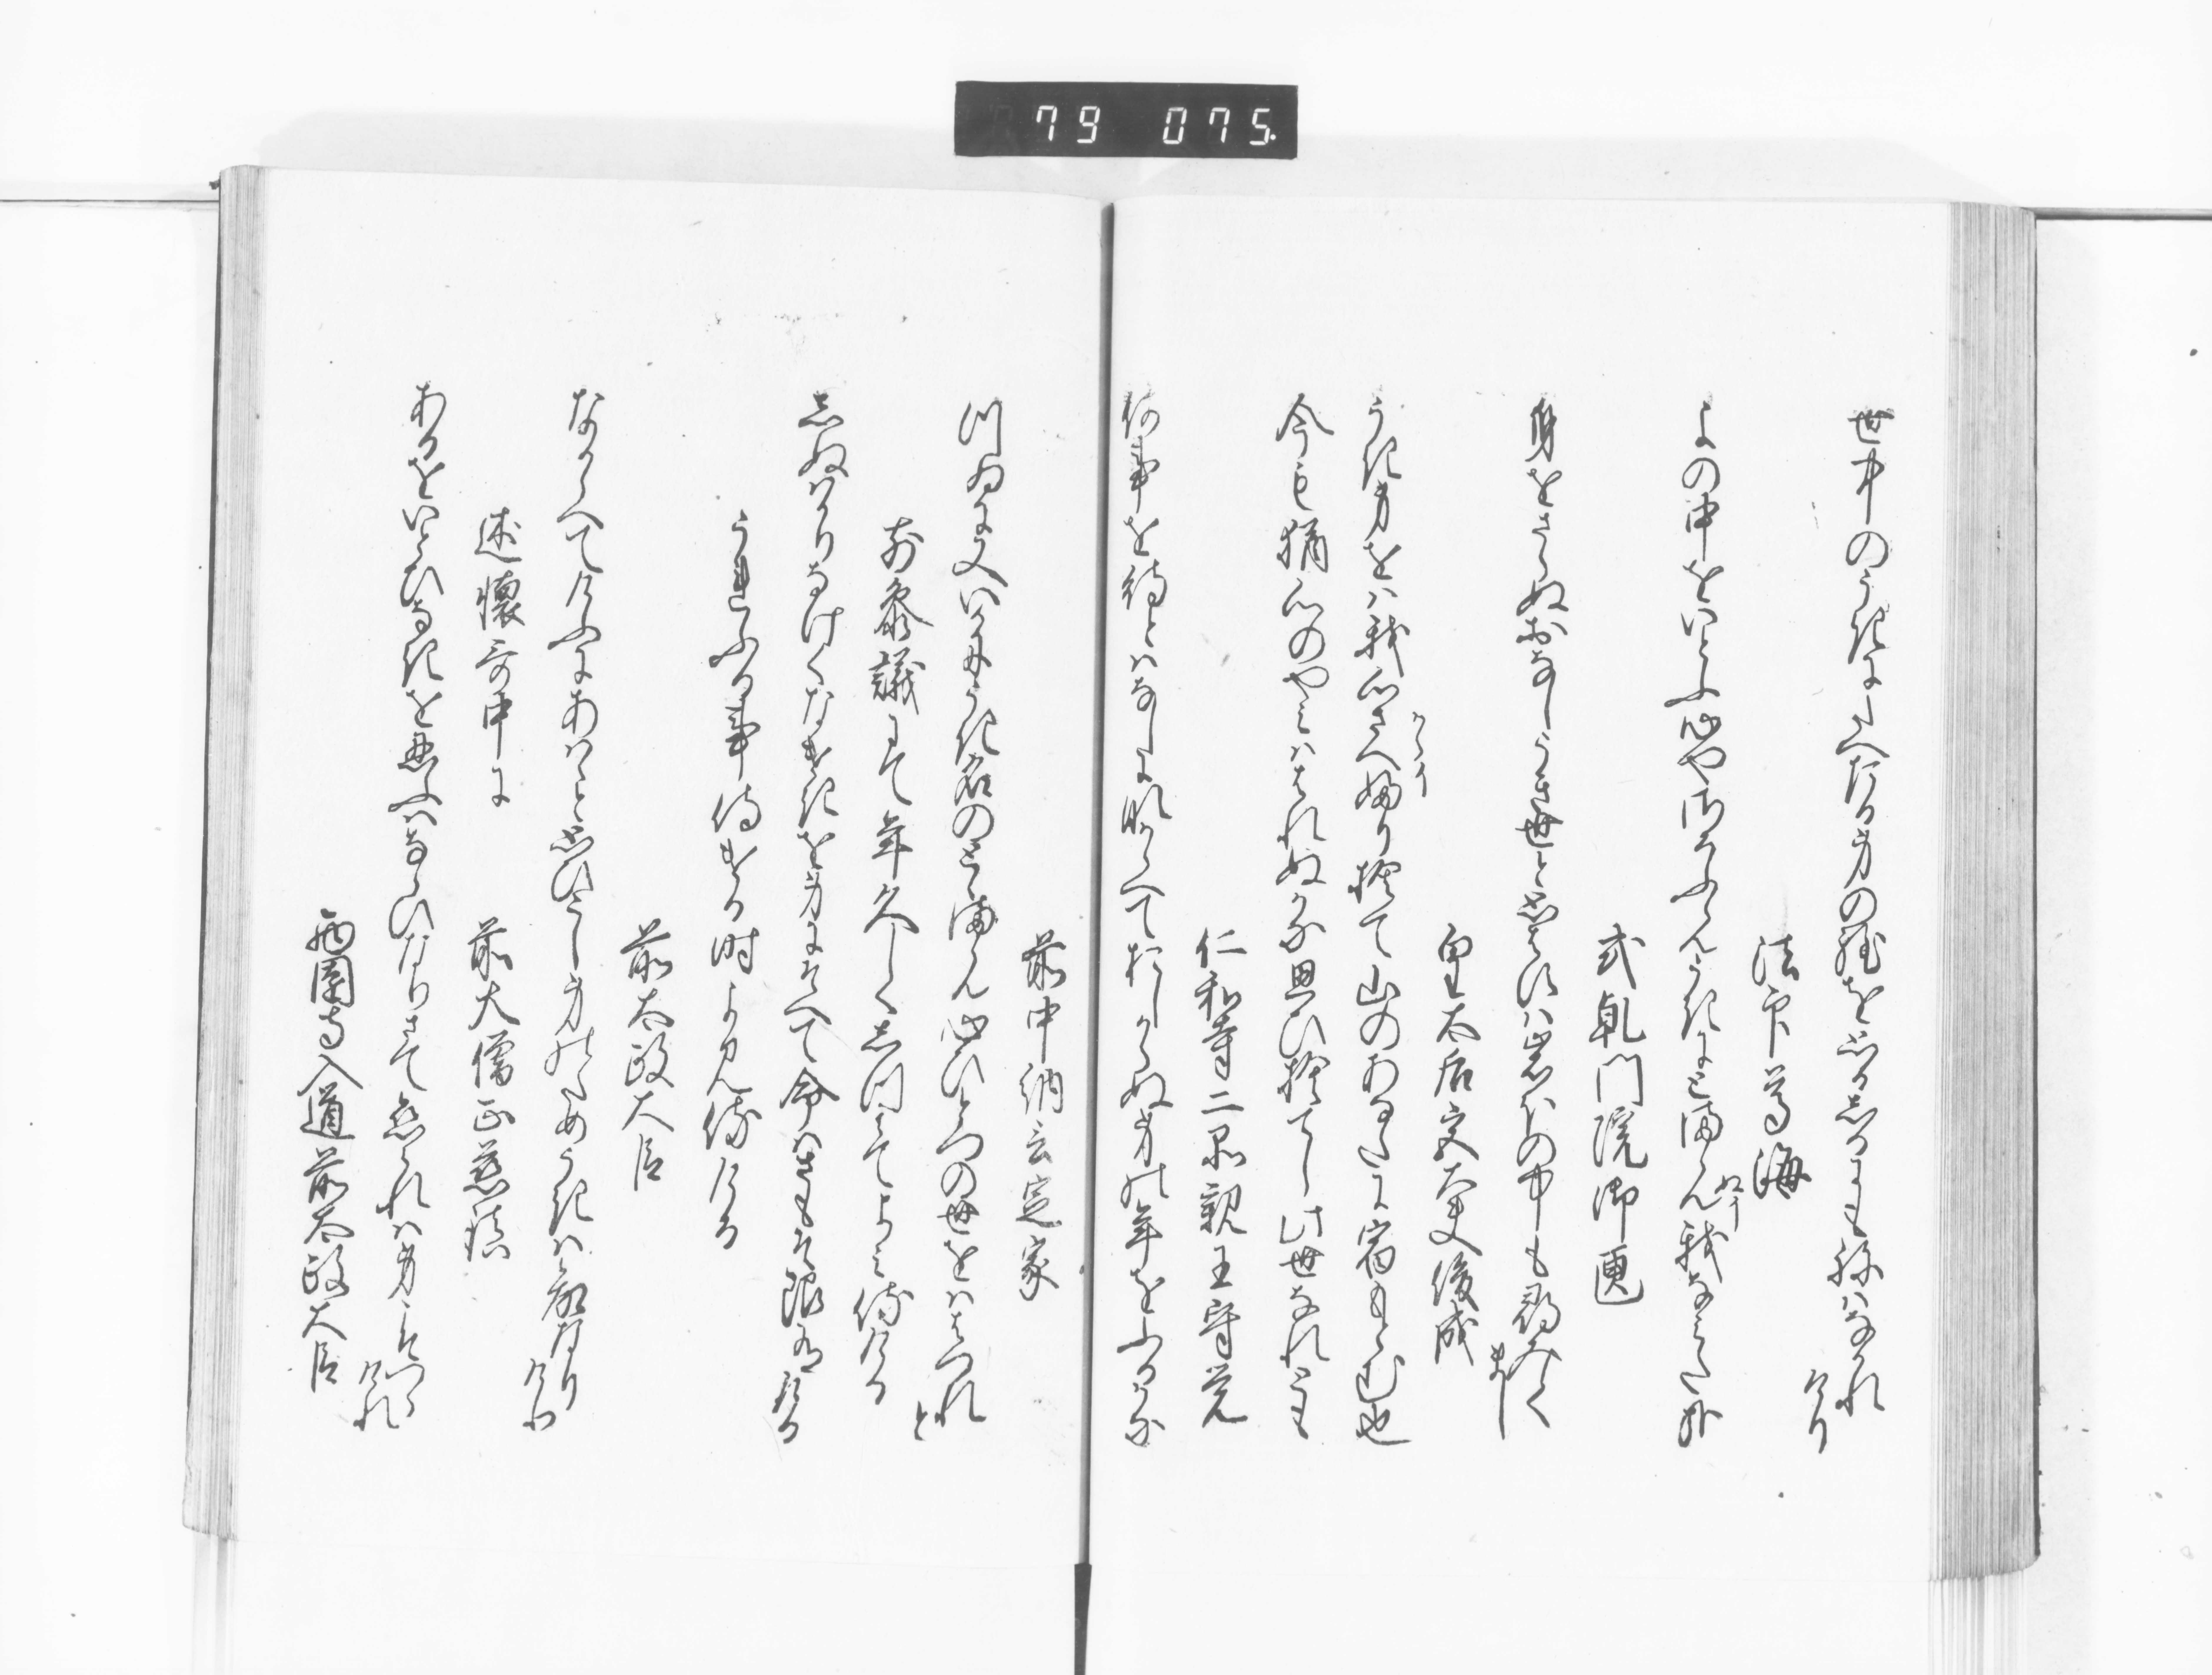 79 075
世中のうきにたへたる身の程を思しるにも袖はなかれ
けり
法印尊海
よの中をいとふ心やかよふらんうきにとまらぬ我なみたかな
式乾門院御匣
身をさらぬおなしうき世と思はすは岩ほの中も尋みて
まし
皇太后宮大夫俊成
うき身をは我心さへふり捨て山のあなたに宿もとむ也
今も猶心のやみははれぬかな思ひ捨てし此世なれとも
仁和寺二品親王守覚
何事を待とはなしに明くらしてをしからぬ身の年をふるかな
前中納言定家
つゐに又いかにうき名のとまらん心ひとつの世をははつれ
と
前参議にて年久しくしつみてよみ侍ける
しぬはかりなけくなけきを身にそへて命はさもそ限有ける
うれふる事侍ける時よみ侍ける
前太政大臣
なからへてけふにあはしと思ひこし身のためうきは命なり
けり
述懐哥中に
前大僧正慈鎮
あるをいとひなきを忍ふはならひなりさて忘られは身をいつ
西園寺入道前太政大臣